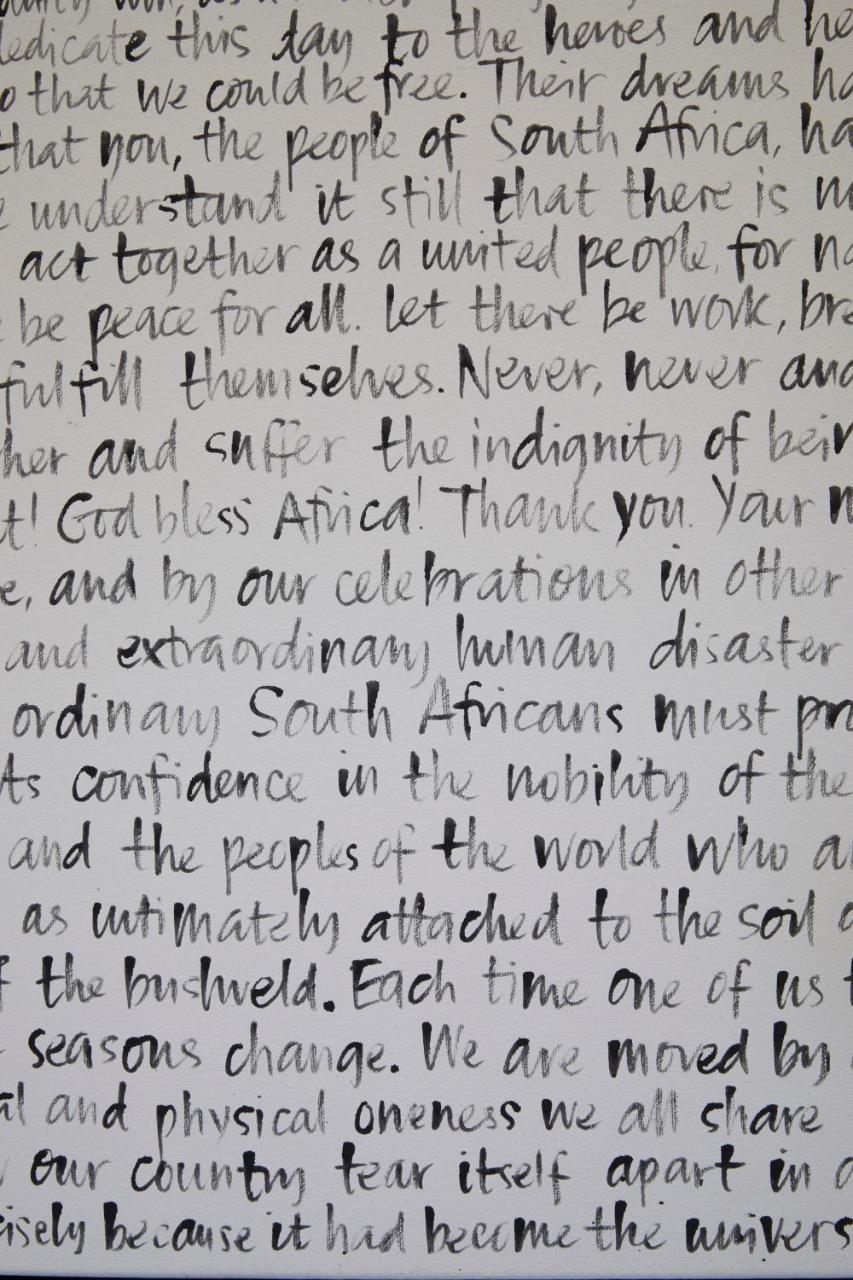 dedicate this day to the heroes and he
o that we could be free. Their dreams ha
that you, the people of South Africa, ha
e understand it still that there is n
act together as a united people, for na
be peace for all. Let there be work, bre
fulfill themselves. Never, never and
her and suffer the indignity of bein
t! God bless Africa! Thank you. Your m
e, and by our celebrations in other
and extraordinary human disaster
ordinary South Africans must pro
ts confidence in the nobility of the
and the peoples of the world who a
as intimately attached to the soil o
f the bushveld. Each time one of us t
seasons change. We are moved by
al and physical oneness we all share
our country tear itself apart in a
isely because it had become the univers